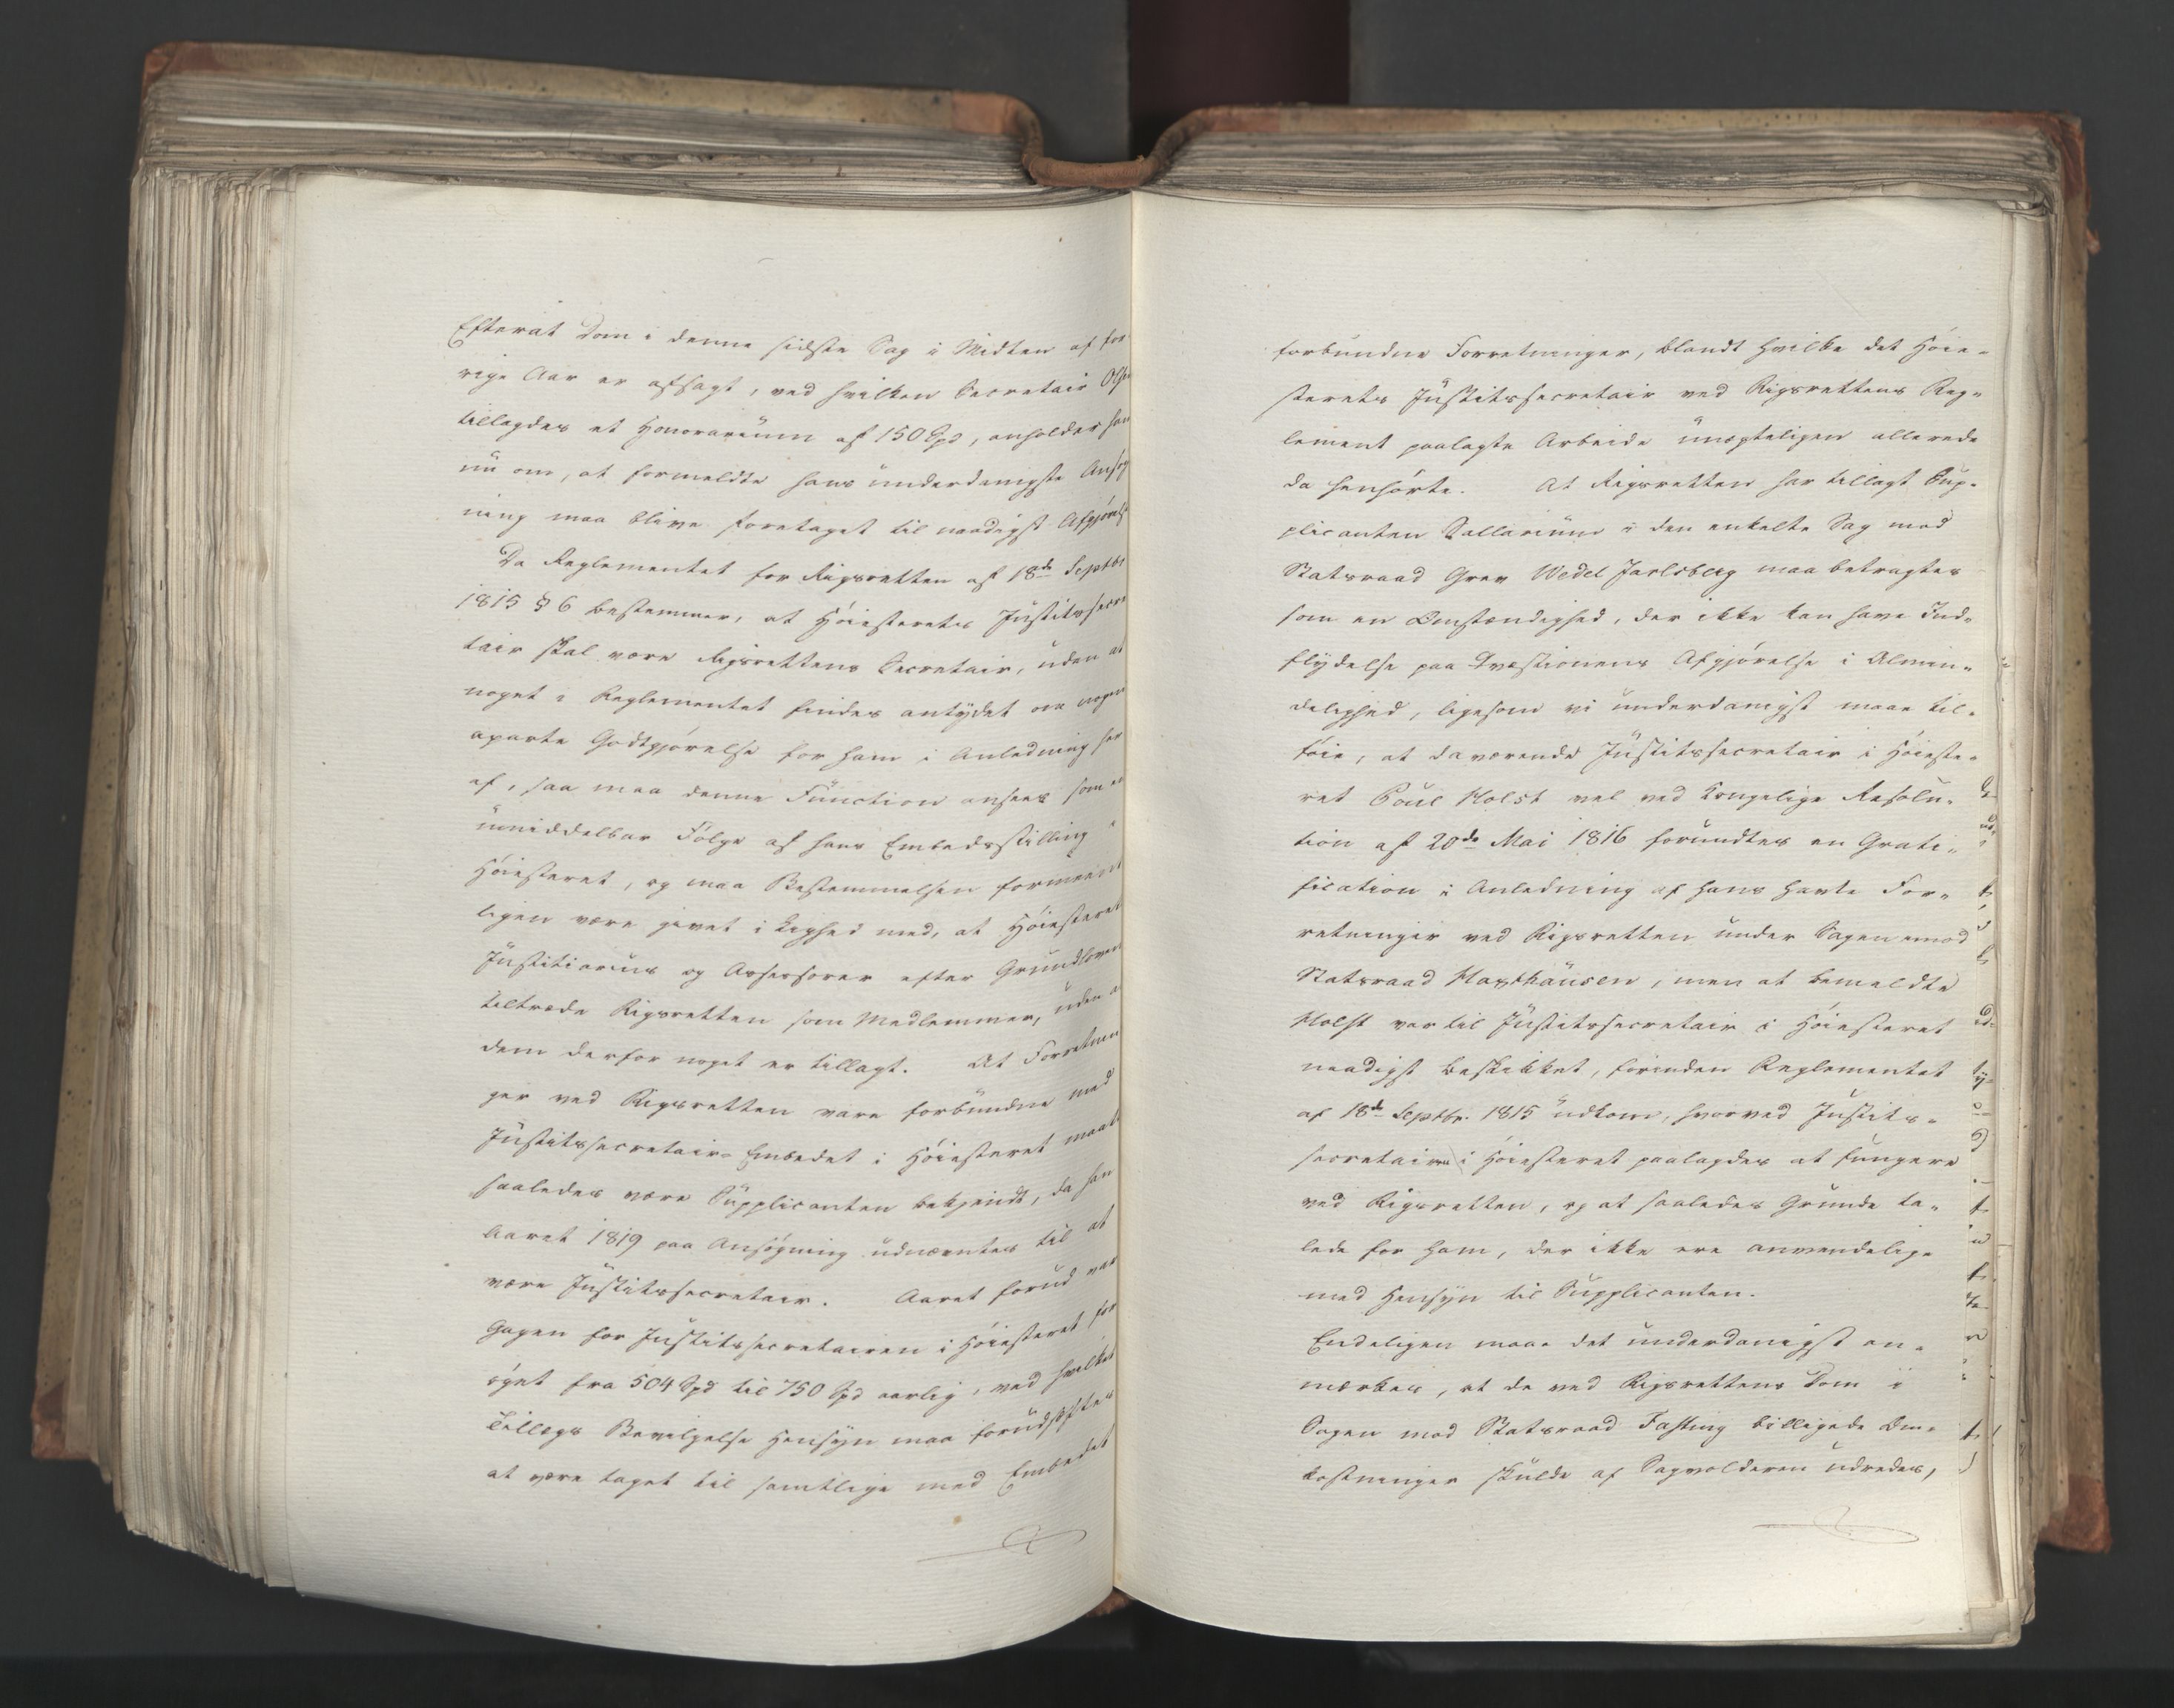 Efterat Dom i denne sidste Sag i Midten af for
rige Aar er afsagt, ved hvilken Secretair Olsen
tillagdes et Honorarium af 150 Spd, anholder han
nu om, at formeldte hans underdanigste Ansøg
ning maa blive foretaget til naadigst Afgjørelse
Da Reglementet for Rigsretten af 18de Septbr
1815 § 6 bestemmer, at Høiesterets Justitssecre
tair skal være Rigsrettens Secretair, uden at
noget i Reglementet findes antydet om nogen
aparte Godtgjørelse for ham i Anledning her
af, saa maa denne Function ansees som en
umiddelbar Følge af hans Embedsstilling i
Høiesteret, og maa Bestemmelsen formeent
ligen være givet i Lighed med, at Høiesterets
Justitiarius og Assessorer efter Grundloven
tiltræde Rigsretten som Medlemmer, uden at
dem derfor noget er tillagt. At Forretnin
ger ved Rigsretten vare forbundne med
Justitssecretair-Embedet i Høiesteret maatte
saaledes være Supplicanten bekjendt, da han
Aaret 1819 paa Ansøgning udnævntes til at
være Justitssecretair. Aaret forud var
Gagen for Justitssecretairen i Høiesteret for
øget fra 504 Spd til 750 Spd aarlig, ved hvilket
Tillægs Bevilgelse Hensyn maa forudsættes
at være taget til samtlige med Embedet
forbundne Forretninger, blandt hvilke det Høie-
sterets Justitssecretair ved Rigsrettens Reg-
lement paalagte Arbeide unægteligen allerede
da henhørte. At Rigsretten har tillagt Sup-
plicanten Sallarium i den enkelte Sag mod
Statsraad Grev Wedel Jarlsberg maa betragtes
som en Omstændighed, der ikke kan have Ind-
flydelse paa Qvæstionens Afgjørelse i Almin-
delighed, ligesom vi underdanigst maae til-
føie, at daværende Justitssecretair i Høieste-
ret Poul Holst vel ved Kongelige Resolu-
tion af 20de Mai 1816 forundtes en Grati-
fication i Anledning af hans havte For-
retninger ved Rigsretten under Sagen imod
Statsraad Haxthausen, men at bemeldte
Holst var til Justitssecretair i Høiesteret
naadigst beskikket, forinden Reglementet
af 18de Septbr. 1815 udkom, hvorved Justits-
secretairen i Høiesteret paalagdes at fungere
ved Rigsretten, og at saaledes Grunde ta-
lede for ham, der ikke ere anvendelige
med Hensyn til Supplicanten.
Endeligen maae det underdanigst an-
mærkes, at de ved Rigsrettens Dom i
Sagen mod Statsraad Fasting billigede Om-
kostninger skulde af Sagvolderen udredes,